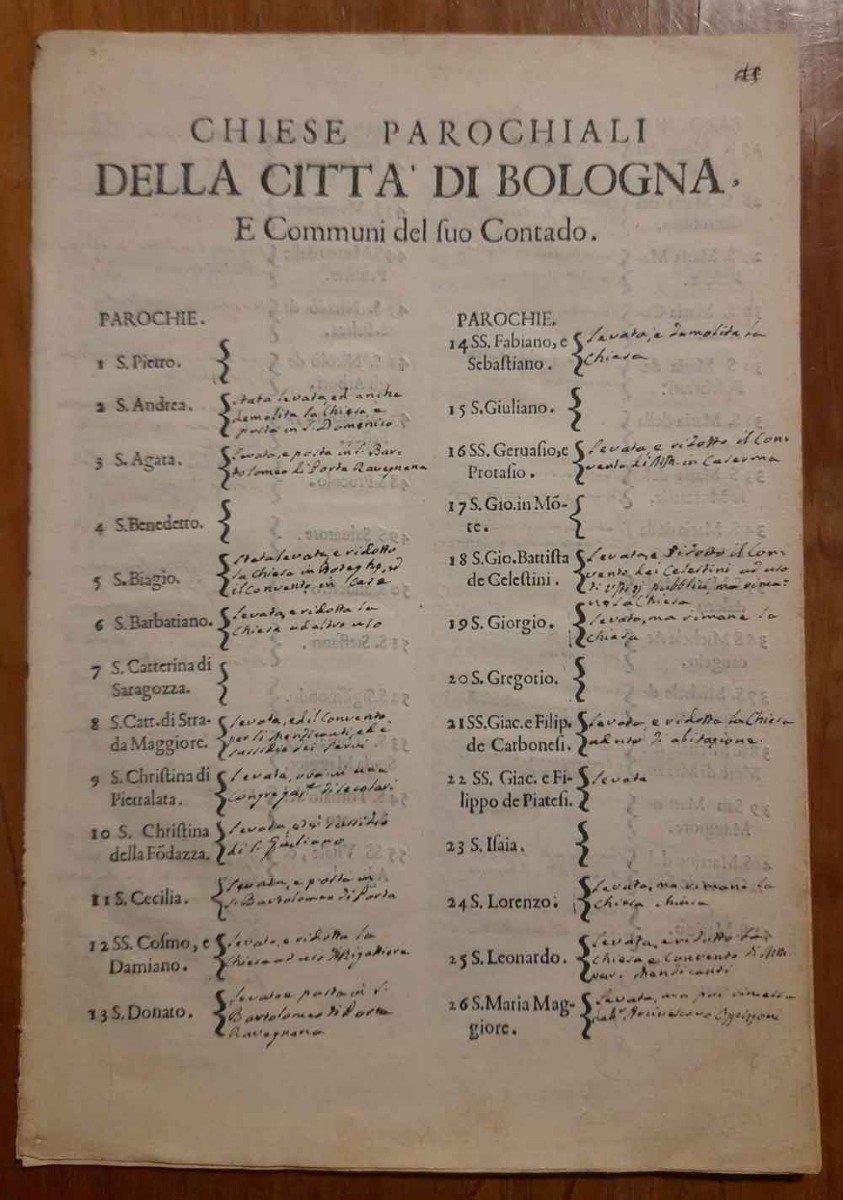 CHIESE PAROCHIALI
DELLA CITTA' DI BOLOGNA,
E Communi del ſuo Contado.
PAROCHIE.
1 S. Pietro.
2 S. Andrea.
stata levata, ed anche
demolita la Chiesa, e
posta in S. Domenico
3 S. Agata.
levata, e posta in S. Bar-
tolomeo di Porta Ravegnana
4 S. Benedetto.
5 S. Biagio.
stata levata, e ridotto
la Chiesa in Boteghe, ed
il Convento in Case
6 S. Barbatiano.
levata, e ridotta la
Chiesa ad altro uso
7 S. Catterina di
Saragozza.
8 S. Catt. di Stra-
da Maggiore.
levata, ed il Convento
per li Mendicanti, ed è
9 S. Chriſtina di
Pietralata.
levata, ora vi una
di secolari
10 S. Chriſtina
della Fōdazza.
levata, è
di S. Giuliano
11 S. Cecilia.
levata, e posta in
S. Bartolomeo di Porta
12 SS. Coſmo, e
Damiano.
levata, e ridotta la
Chiesa ad uso
13 S. Donato.
levata e posta in S.
Bartolomeo di Porta
Ravegnana
PAROCHIE.
14 SS. Fabiano, e
Sebaſtiano.
levata, e demolita la
Chiesa
15 S. Giuliano.
16 SS. Geruaſio, e
Protaſio.
levata, e ridotto il Con-
vento di in Caserma
17 S. Gio. in Mō-
te.
18 S. Gio. Battiſta
de Celeſtini.
levata, e ridotto il Con-
vento dei Celestini ad uso
di Ufizi pubblici, ma rima-
ne la Chiesa
19 S. Giorgio.
levata, ma rimane la
Chiesa
20 S. Gregorio.
21 SS. Giac. e Filip.
de Carboneſi.
levata, e ridotta la Chiesa
ad uso di abitazione.
22 SS. Giac. e Fi-
lippo de Piateſi.
levata
23 S. Iſaia.
24 S. Lorenzo.
levata, ma rimane la
Chiesa chiusa
25 S. Leonardo.
levata, e ridotto la
Chiesa e Convento di
Mendicanti
26 S. Maria Mag-
giore.
levata, ma poi rimessa
Arcivescovo Opizzoni